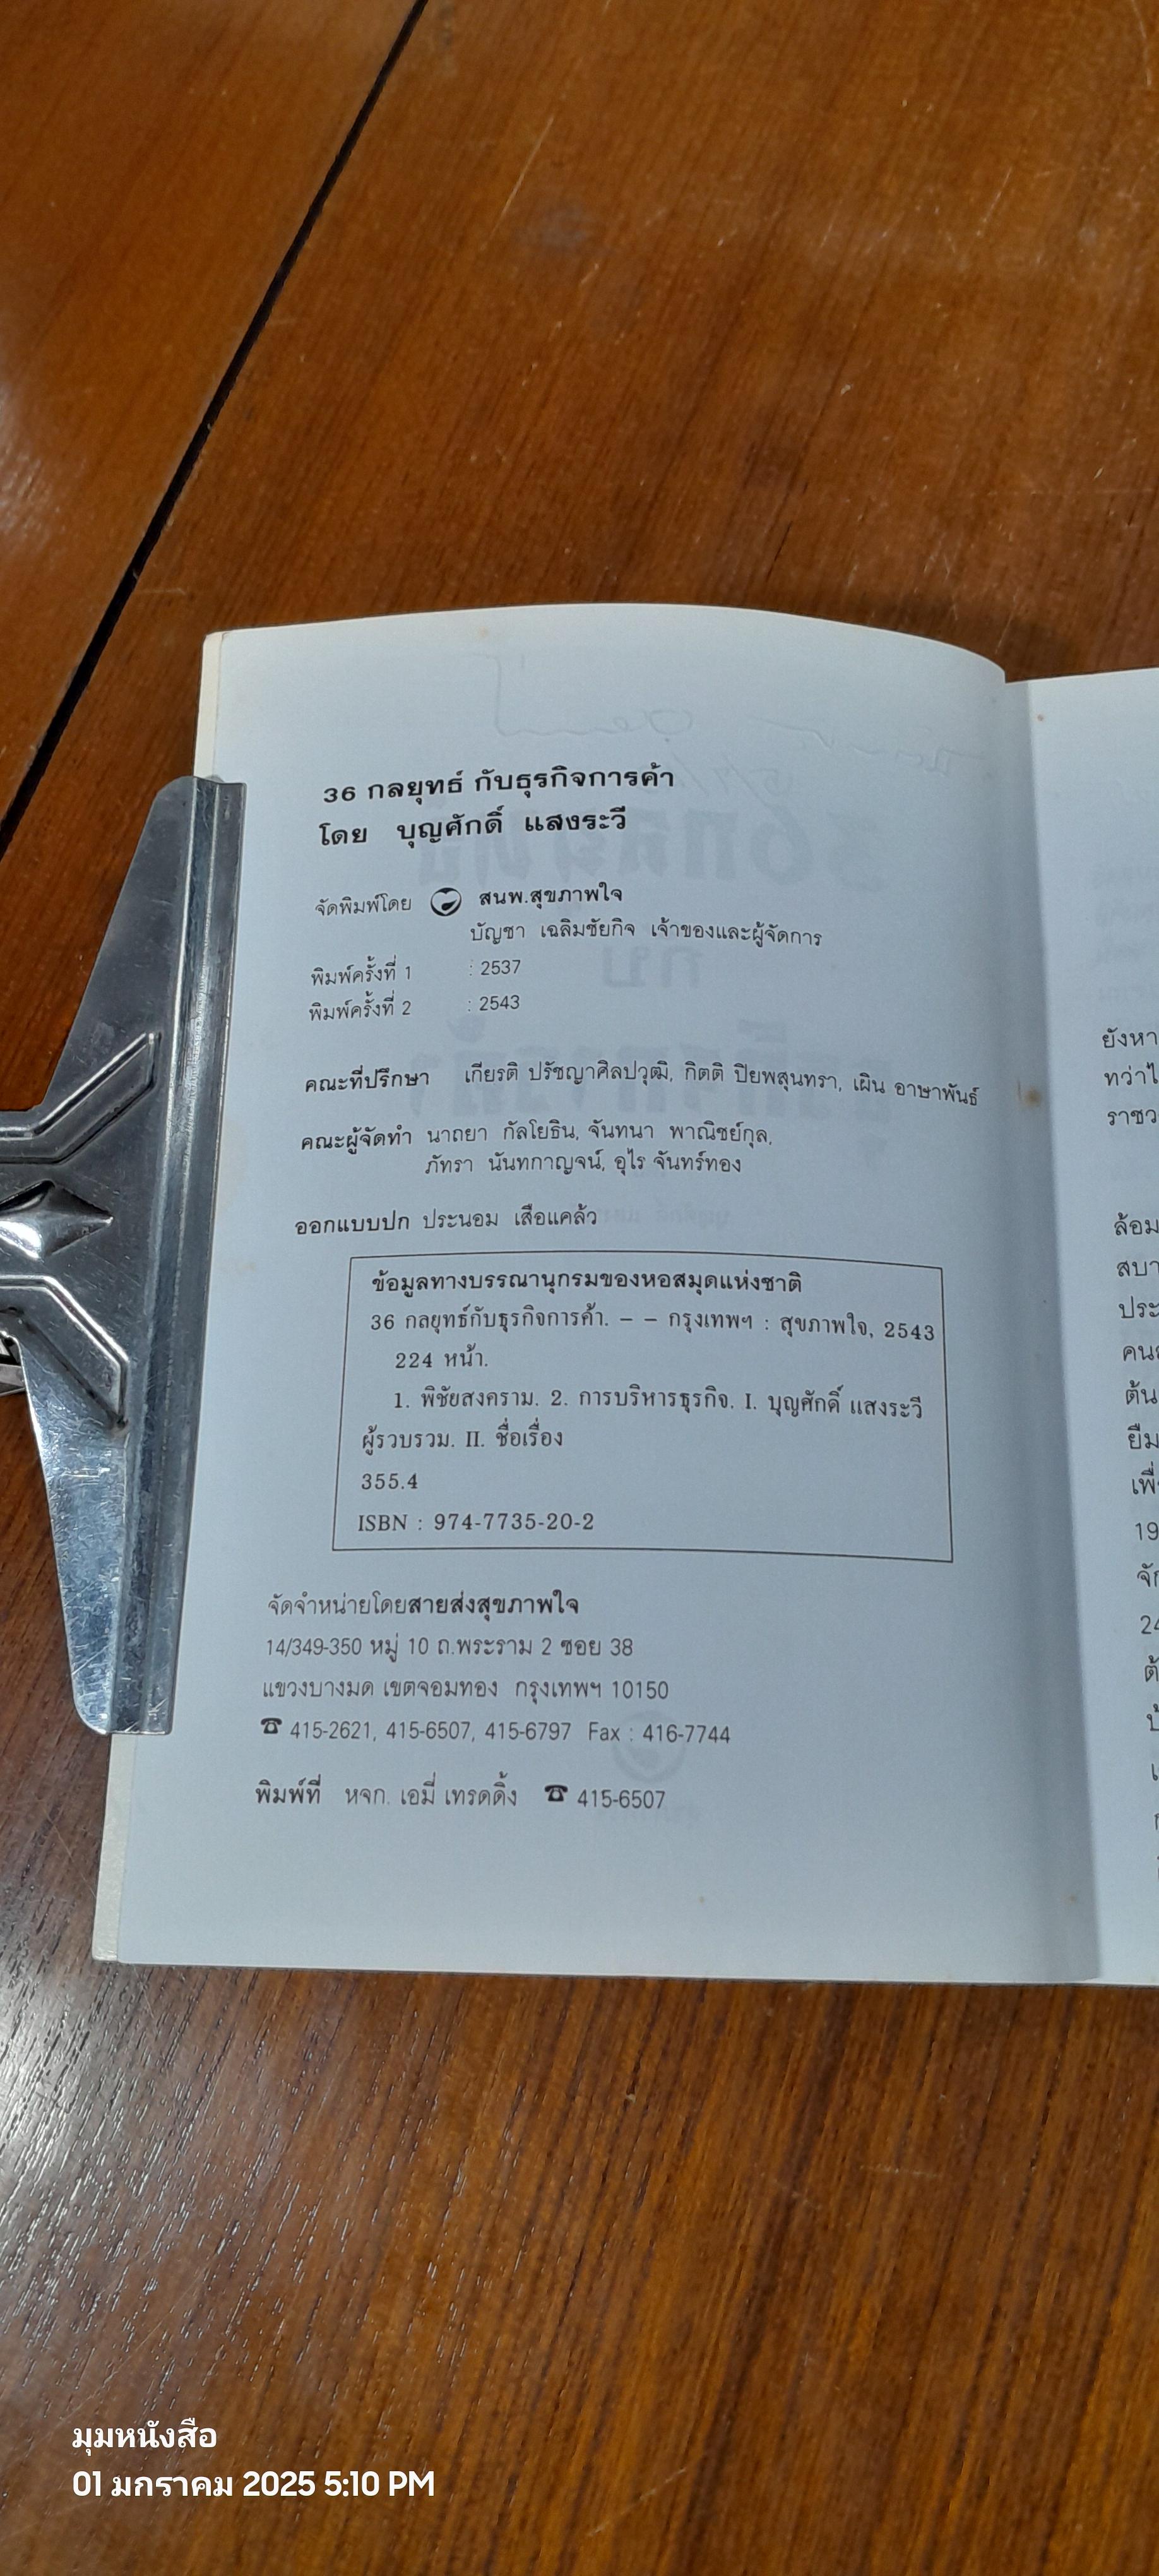 36 กลยุทธ์ กับธุรกิจการค้า
โดย บุญศักดิ์ แสงระวี
จัดพิมพ์โดย สนพ.สุขภาพใจ
บัญชา เฉลิมชัยกิจ เจ้าของและผู้จัดการ
พิมพ์ครั้งที่ 1 : 2537
พิมพ์ครั้งที่ 2 : 2543
คณะที่ปรึกษา เกียรติ ปรัชญาศิลปวุฒิ, กิตติ ปิยพสุนทรา, เผิน อาษาพันธ์
คณะผู้จัดทำ นาถยา กัลโยธิน, จันทนา พาณิชย์กุล,
ภัทรา นันทกาญจน์, อุไร จันทร์ทอง
ออกแบบปก ประนอม เสือแคล้ว
ข้อมูลทางบรรณานุกรมของหอสมุดแห่งชาติ
36 กลยุทธ์กับธุรกิจการค้า. – – กรุงเทพฯ : สุขภาพใจ, 2543
224 หน้า.
1. พิชัยสงคราม. 2. การบริหารธุรกิจ. I. บุญศักดิ์ แสงระวี
ผู้รวบรวม. II. ชื่อเรื่อง
355.4
ISBN : 974-7735-20-2
จัดจำหน่ายโดยสายส่งสุขภาพใจ
14/349-350 หมู่ 10 ถ.พระราม 2 ซอย 38
แขวงบางมด เขตจอมทอง กรุงเทพฯ 10150
☎ 415-2621, 415-6507, 415-6797 Fax : 416-7744
พิมพ์ที่ หจก. เอมี่ เทรดดิ้ง ☎ 415-6507
ยังหา
ทว่าไ
ราชว
ล้อม
สบา
ประ
ต้น
ยืม
เพื่
19
24
มุมหนังสือ
01 มกราคม 2025 5:10 PM